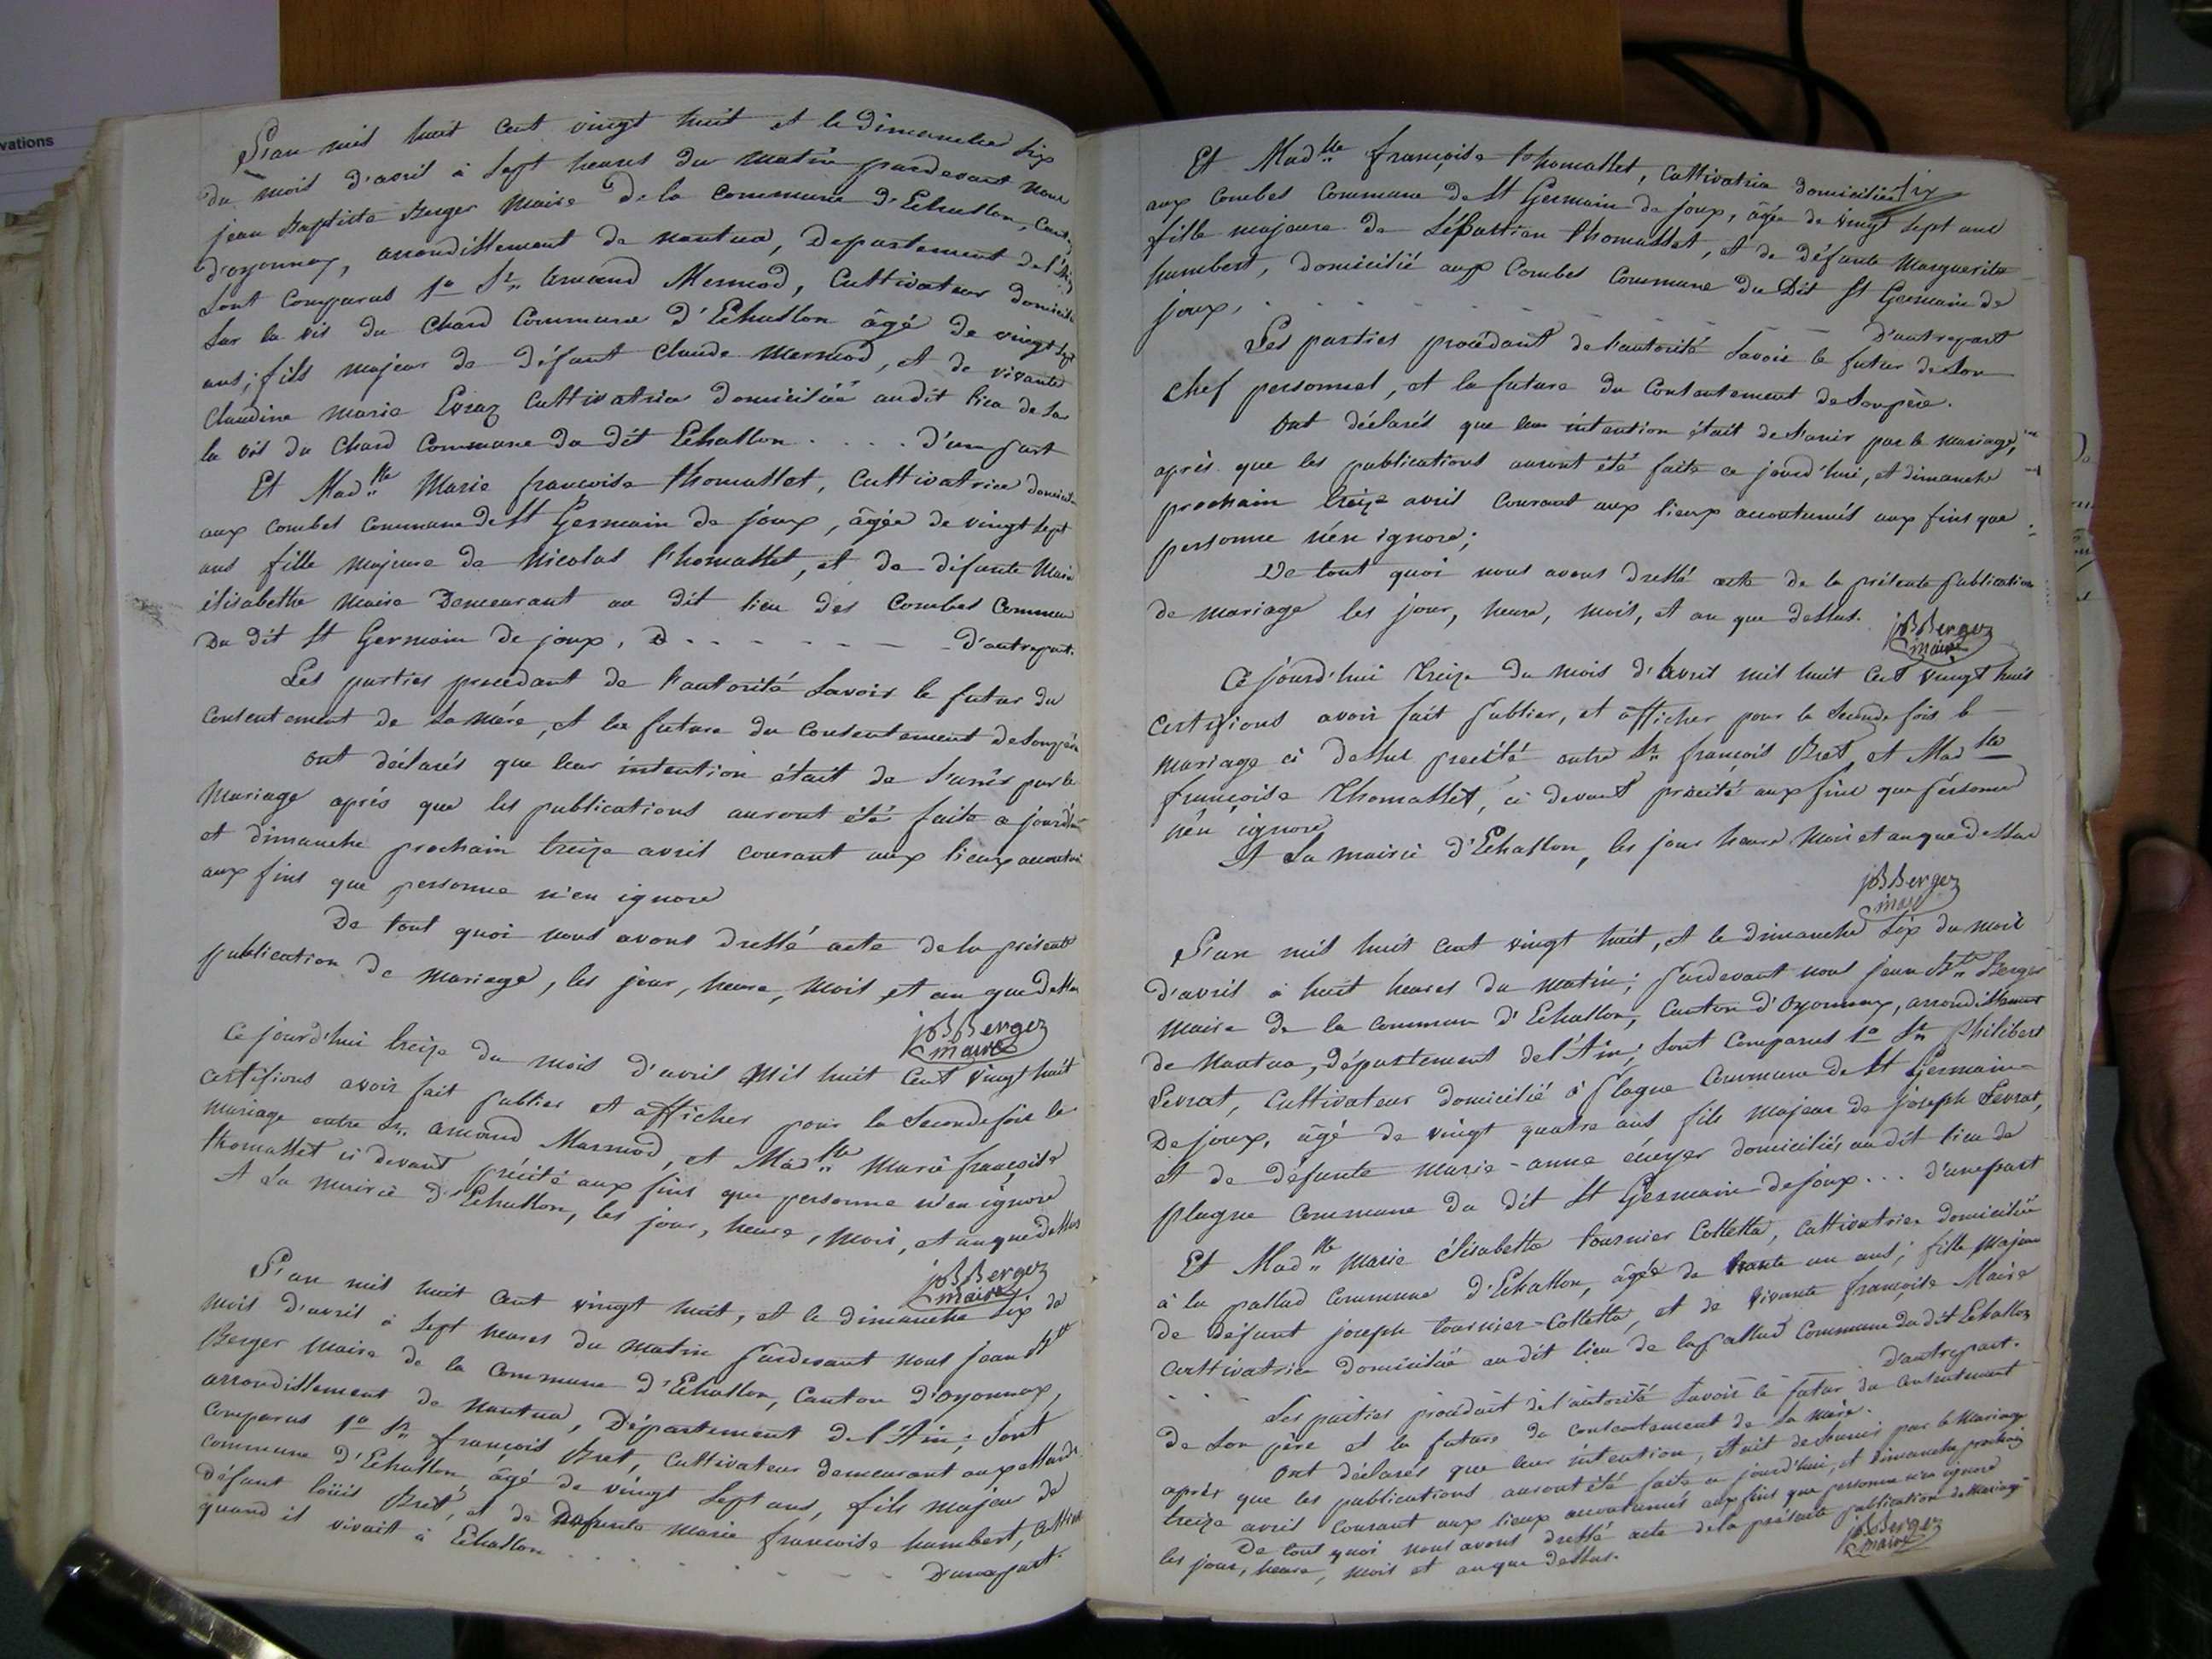 vations
L'an mil huit cent vingt huit et le dimanche six
du mois d'avril à sept heures du matin pardevant nous
jean Baptiste Berger Maire de la commune d'Echallon, Canton
d'oyonnax, arrondissement de nantua, Departement de l'Ain
sont comparus 1o Sr. Armand Mermod, Cultivateur domicilié
sur la vis du Chard Commune d'Echallon âgé de vingt sept
ans; fils majeur de défunt Claude Mermod, et de vivante
Claudine Marie Evraz Cultivatrice domiciliée audit lieu de sur
la vis du Chard Commune du dit Echallon .... d'une part
Et Madlle Marie françoise thomasset, Cultivatrice
aux combes commune de St Germain de joux, âgée de vingt sept
ans fille majeure de Nicolas thomasset, et de défunte Marie
élisabethe Maire Demeurant au dit lieu des Combes Commune
Du dit St Germain de joux, - - - - d'autre part.
Les parties procedant de l'autorité savoir le futur du
consentement de sa mére, et la future du consentement de son père
ont déclarés que leur intention était de s'unir par le
Mariage aprés que les publications auront été faite ce jourd'hui
et dimanche prochain treize avril courant aux lieux accoutumés
aux fins que personne n'en ignore
De tout quoi nous avons dressé acte de la présente
publication de mariage, les jour, heure, mois et an que dessus
jBBerger
maire
Ce jourd'hui treize du mois d'avril Mil huit Cent vingt huit
certifions avoir fait publier et afficher pour la seconde fois le
Mariage entre Sr. armand Mermod, et Madlle Marie françoise
thomasset ci devant précité aux fins que personne n'en ignore
A La Mairie d'Echallon, les jour, heure, mois, et an que dessus
jBBerger
maire
L'an mil huit Cent vingt huit, et le dimanche six du
mois d'avril à sept heures du matin pardevant nous jean Bte
Berger Maire de la Commune d'Echallon, Canton d'oyonnax,
arrondissement de Nantua, Département de l'Ain; sont
Comparus 1o Sr. françois Bret, Cultivateur demeurant
commune d'Echallon âgé de vingt sept ans, fils majeur de
défunt louis Bret, et de défunte Marie françoise humbert,
quand il vivait à Echallon - - - D'une part.
Et Madlle françoise thomasset, Cultivatrice domiciliée
six
aux combes commune de St Germain de joux, âgée de vingt sept ans
fille majeure de Sébastien thomasset, et de défunte Marguerite
humbert, domicilié aux Combes Commune du Dit St Germain de
joux, - - - - D'autre part
Les parties procédant de l'autorité savoir le futur de son
chef personnel, et la future du Consentement de son père.
Ont déclarés que leur intention était de s'unir par le mariage,
après que les publications auront été faite ce jourd'hui, et dimanche
prochain treize avril Courant aux lieux accoutumés aux fins que
personne n'en ignore;
De tout quoi nous avons dressé acte de la présente publication
de mariage les jour, heure, mois, et an que dessus.
jBBerger
maire
Ce jourd'hui treize du mois d'Avril mil huit Cent vingt huit
Certifions avoir fait publier, et afficher pour la seconde fois le
mariage ci dessus précité entre Sr. françois Bret, et Madlle
françoise Thomasset, ci devant précité aux fins que personne
n'en ignore
A La mairie d'Echallon, les jour heure Mois et an que dessus
jBBerger
maire
L'an mil huit cent vingt huit, et le dimanche six du mois
d'avril à huit heures du matin; pardevant nous jean Bte Berger
Maire de la commune d'Echallon, Canton d'Oyonnax, arrondissement
de Nantua, département de l'Ain; sont Comparus 1o Sr. Philibert
Levrat, Cultivateur domicilié à plagne Commune de St Germain
De joux, âgé de vingt quatre ans fils Majeur de joseph Levrat,
et de défunte Marie-anne domiciliés au dit lieu de
Plagne Commune du dit St Germain de joux ... d'une part
Et Madlle Marie élisabethe tournier Colletta, Cultivatrice domiciliée
à la pallud Commune d'Echallon, âgée de trente un ans; fille Majeure
de Défunt joseph tournier-Colletta, et de vivante françoise Maire
Cultivatrice domiciliée au dit lieu de la pallud Commune du dit Echallon
- - - D'autre part.
Les parties procédant de l'autorité savoir le futur du Consentement
de son père et la future du consentement de sa mère.
Ont déclarés que leur intention, était de s'unir par le Mariage
après que les publications auront été faite ce jourd'hui, et Dimanche prochain
treize avril Courant aux lieux accoutumés aux fins que personne n'en ignore
De tout quoi nous avons dressé acte de la présente publication de Mariage
les jour, heure, mois et an que dessus.
jBBerger
maire